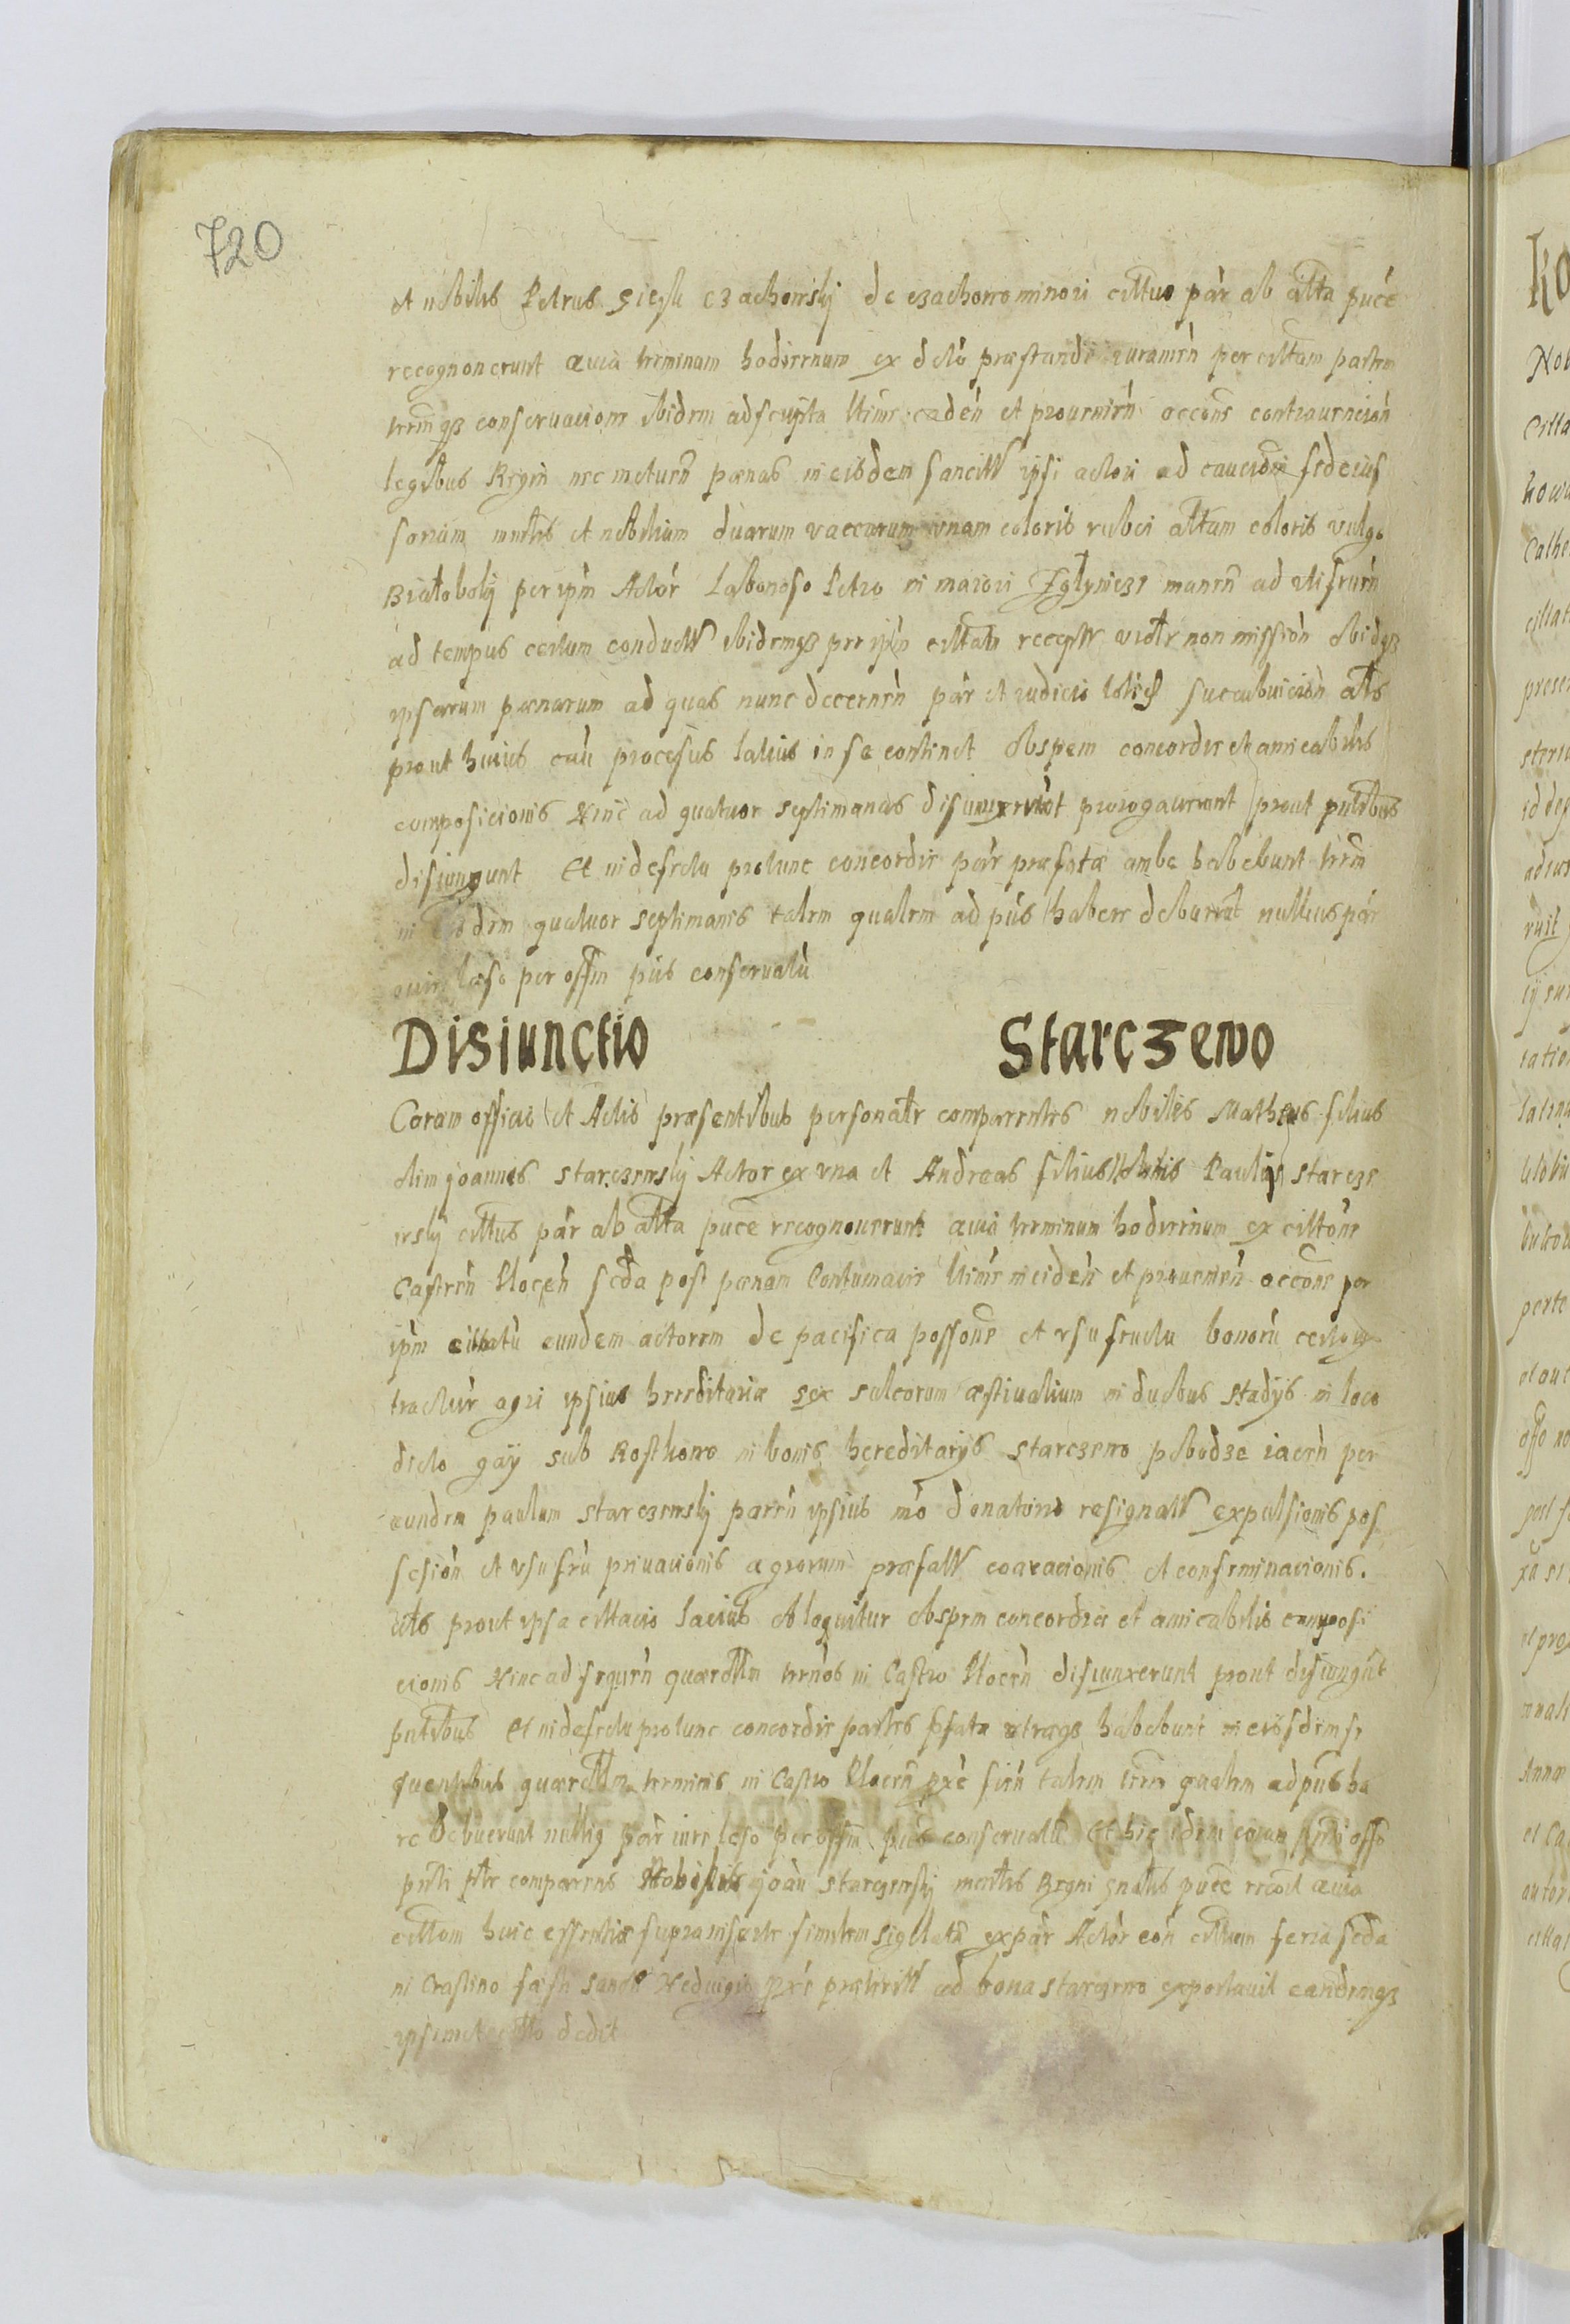 720
et nobilis Petrus Gięsk Czachowsky de czachowo minori cittus pãr ab alta pñce
recognoverunt quia terminum hodiernum ex dcto præstandi iuramẽn per cittam partem
termqz conservacione ibidem adscripta ltimẽ caden et provenien occone contravencion
legibus Regni nec metuen pœnas in eisdem sancitt ipsi actori ad caucione fideius
soriam mobilis et nobilium duarum vaccarum unam coloris rubei altam coloris vulgo
Białoboky per ipm Actor Laborioso Petro in maiori manen ad utifruen
ad tempus certum conductt ibidemqz per ipm cittatu receptt violr non mission obidqz
ipsarum pœnarum ad quas nunc decernen pãr et iudicio loties succubuicion als
prout huius cau processus latius in se continet Obspem concordie et amicabilis
composicionis Hinc ad quatuor septimanas disiunxerunt prorogaverunt prout pntibus
disiungunt Et in defectu protunc concordie pãr præfatæ ambe habebunt term
in eisdem quatuor septimanis talem qualem ad pñs habere deburrat nullius pãr
iure læso per offm pñs conservatu
Disiunctio Starczewo
Coram officio et Actis præsentibus personalr comparentes nobiles Matheus filius
olim joannis starczewsky Actor ex una et Andreas filius Nobilis Pauli starcze
wsky cittus pãr ab alta pñce recognoverunt quia terminum hodiernum ex cittone
Castren Plocen scda post pœnam Contumacie ltime inciden et provenien occone per
ipm cittatu eundem actorem de pacifica possone et usufructu bonoru certorum
tractus agri ipsius hereditariæ sex sulcorum æstivalium in duobus stadys in loco
dicto gay sub Rosthowo in bonis hereditarys starczewo pobodze iacen per
eundem paulum starczewsky paren ipsius mo donatorio resignatt expulsionis pos
session et usufru privacionis agrorum præfatt coaracionis et conseminacionis.
als prout ipsa cittacio lacius obloquitur obspem concordiæ et amicabilis composi
cionis Hinc ad sequen querellm termos in Castro Plocen disiunxerunt prout disiungunt
pntibus Et in defectu protunc concordie partes pfata utraqz habebunt in eisdem se
quentibus querellr terminis in Castro Plocen pxe fien talem term qualem ad pñs ha
re debuerunt nullig pãr iure leso per offm pñs conservatu Et hic idem coram pnti offo
pnti plr comparens Nobilis joan starczewsky mentis Regni gnalis pñce recoit quia
cittam huic essentiæ suprainserte similem sigillata expar Actor con cittum feria scda
in Crastino festi sanctt Hedvigis pxe præteritt ad bona starczewo exportavit eandemqz
ipsimet citto dedit